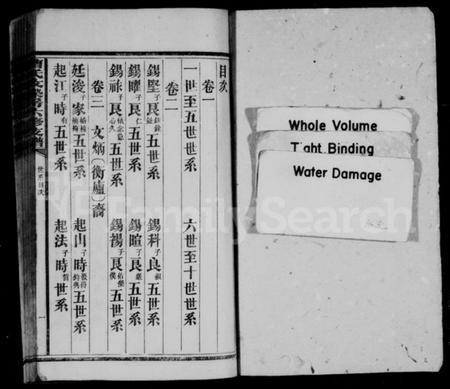 目次
卷一
一世至五世世系
六世至十世世系
卷二
錫堅子良 五世系
錫科子良 五世系
錫曜子良仁 五世系
錫暄子良 五世系
錫祿子良 五世系
錫 子良 五世系
卷三 文炳(衡廬)裔
廷浚子家 五世系
起山子時 五世系
起江子時有 五世系
起法子時 世系
氏 房六修支譜
世系目次
一
Whole Volume
Tight Binding
Water Damage
FamilySearch